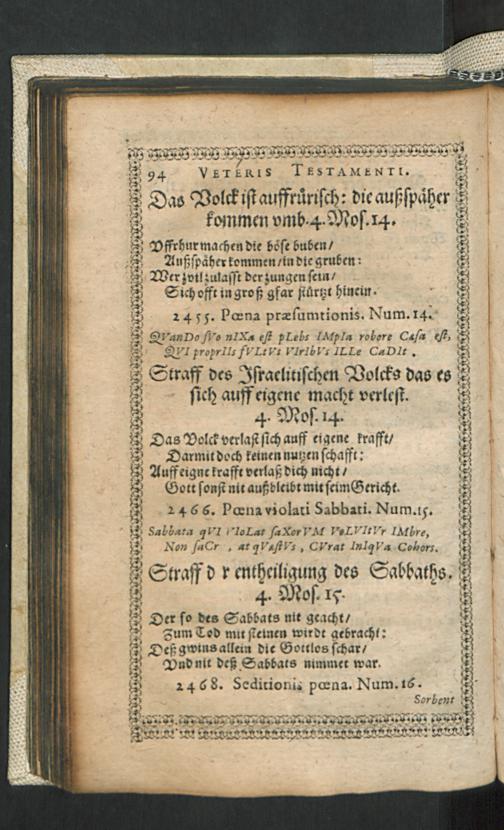 94 VETERIS TESTAMENTI.
Das Volck ist auffrürisch: die außspäher
kommen vmb. 4. Mos. 14.
Vffrhur machen die böse buben/
Außspäher kommen/in die gruben:
Wer zvil zulasst der zungen sein/
Sich offt in groß gfar stürtzt hinein.
2455. Pœna præsumtionis. Num. 14.
QVanDo sVo nIXa est pLebs IMpIa robore Cæsa est,
QVI proprIIs fVLtVs VIrIbVs ILLe CaDIt.
Straff des Israelitischen Volcks das es
sich auff eigene macht verlest.
4. Mos. 14.
Das Volck verlast sich auff eigene krafft/
Darmit doch keinen nutzen schafft:
Auff eigne krafft verlaß dich nicht/
Gott sonst nit außbleibt mit seim Gericht.
2466. Pœna violati Sabbati. Num. 15.
Sabbata qVI VIoLat saXorVM VoLVItVr IMbre,
Non saCr , at qVæstVs , CVrat InIqVa Cohors.
Straff d r entheiligung des Sabbaths.
4. Mos. 15.
Der so des Sabbats nit geacht/
Zum Tod mit steinen wirdt gebracht:
Deß gwins allein die Gottlos schar/
Vnd nit deß Sabbats nimmet war.
2468. Seditionis pœna. Num. 16.
Sorbent